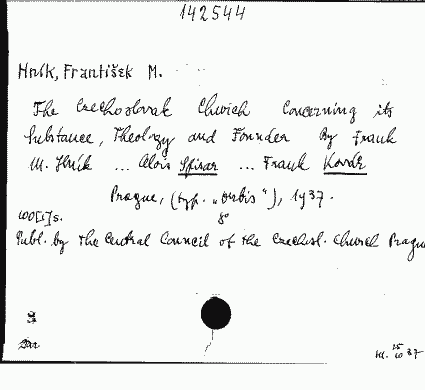 142544
Hník, František M.
The Czechoslovak Church Concerning its
Substance, Theology and Founder By Frank
M. Hník ... Alois Spisar ... Frank Kovář
Prague, (typ. „Orbis"), 1937.
100[1]s. 8°
Publ. by the Central Council of the Czechosl. Church Prague
37